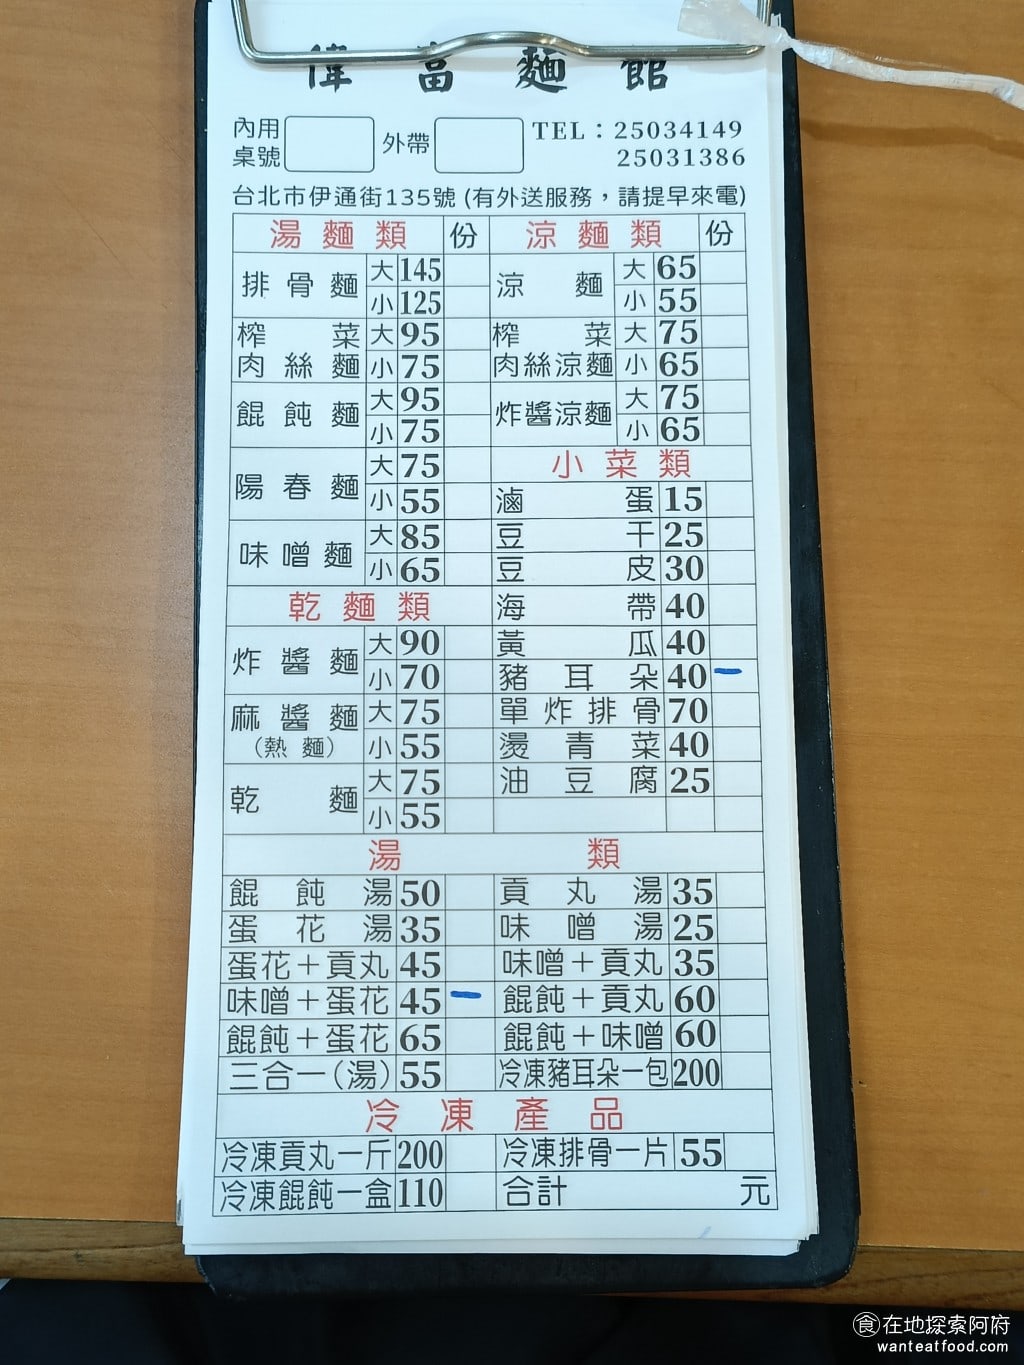 偉富麵館
內用桌號 外帶 TEL：25034149
25031386
台北市伊通街135號 (有外送服務，請提早來電)
湯麵類 份 涼麵類 份
排骨麵 大 145 涼麵 大 65
小 125 小 55
榨菜肉絲麵 大 95 榨菜肉絲涼麵 大 75
小 75 小 65
餛飩麵 大 95 炸醬涼麵 大 75
小 75 小 65
陽春麵 大 75 小菜類
小 55 滷蛋 15
味噌麵 大 85 豆干 25
小 65 豆皮 30
乾麵類 海帶 40
炸醬麵 大 90 黃瓜 40
小 70 豬耳朵 40
麻醬麵(熱麵) 大 75 單炸排骨 70
小 55 燙青菜 40
乾麵 大 75 油豆腐 25
小 55
湯類
餛飩湯 50 貢丸湯 35
蛋花湯 35 味噌湯 25
蛋花＋貢丸 45 味噌＋貢丸 35
味噌＋蛋花 45 餛飩＋貢丸 60
餛飩＋蛋花 65 餛飩＋味噌 60
三合一(湯) 55 冷凍豬耳朵一包 200
冷凍產品
冷凍貢丸一斤 200 冷凍排骨一片 55
冷凍餛飩一盒 110 合計 元
食在地探索阿府
wanteatfood.com